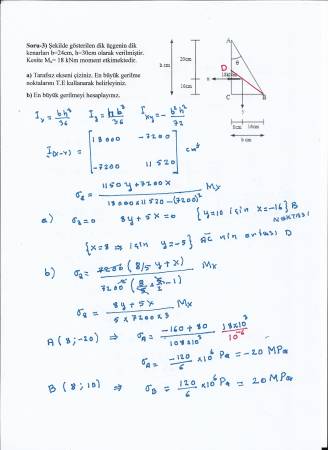 Soru-3) Şekilde gösterilen dik üçgenin dik
kenarları b=24cm, h=30cm olarak verilmiştir.
Kesite Mx= 18 kNm moment etkimektedir.
a) Tarafsız ekseni çiziniz. En büyük gerilme
noktalarını T.E kullanarak belirleyiniz.
b) En büyük gerilmeyi hesaplayınız.
A
h cm
20cm
10cm
θ
D
18kNm
x
C
B
y
8cm
16cm
Ix = bh³/36   Iy = hb³/36   Ixy = - b²h²/72
I(x-y) = [ 18000   -7200
-7200   11520 ] cm⁴
σz = (11520y+7200x) / (18000x11520-(7200)²) Mx
a) σz=0   8y+5x=0   {y=10 için x=-16} B
NOKTASI
{x=8 ⇒ için y=-5} AC nin ortası D
b) σz = 7200 (8/5 y+x) / Mx
σz = (8y+5x) / (5x7200x3) Mx
A(8;-20) ⇒ σA = (-160+40)/(108x10³) 18x10³/10⁻⁶
σA = -120/6 x10⁶ Pa = -20 MPa
B(8;10) ⇒ σB = 120/6 x10⁶ Pa = 20 MPa